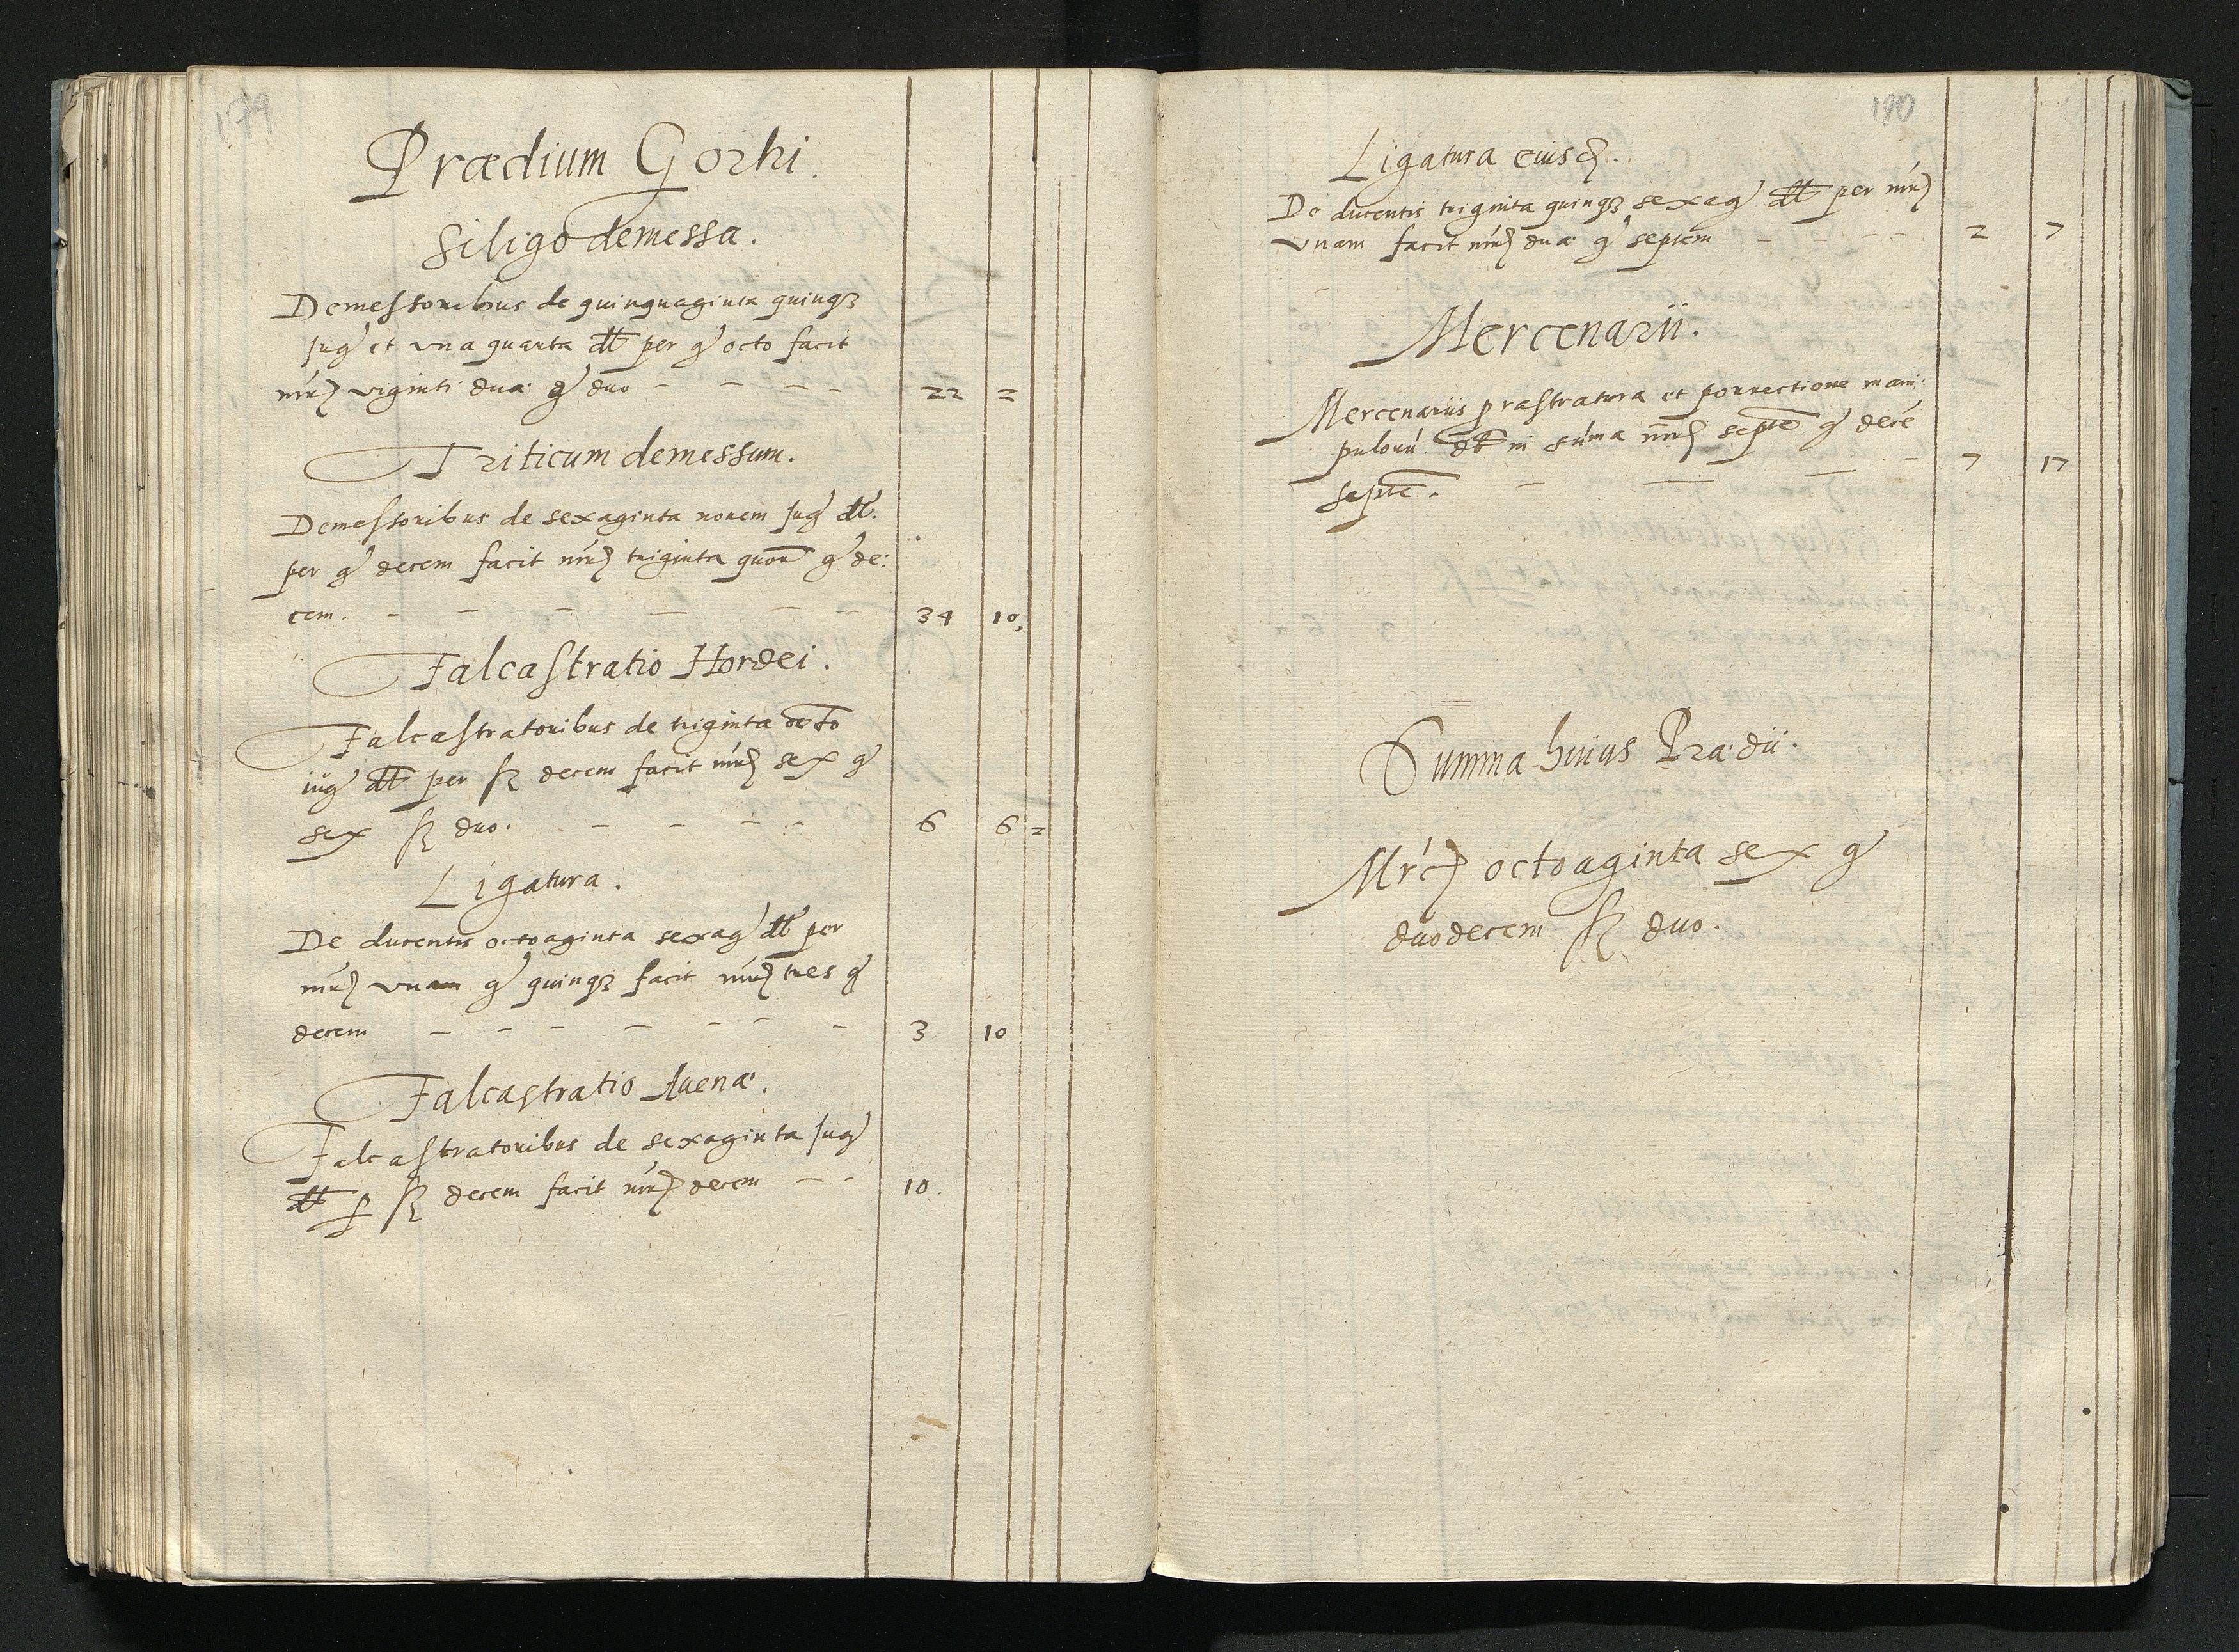 179
Prædium Gorki.
Siligo demessa.
Demessoribus de quinquaginta quinqꝫ
Jug et una quarta dt per g octo facit
mrc viginti duæ g duo - - - - 22 2
Triticum demessum.
Demessoribus de sexaginta novem Jug dt.
per g decem facit mrc triginta quor g de:
cem. - - - - - - 34 10
Falcastratio Hordei.
Falcastratoribus de triginta octo
iug dt per ß decem facit mrc sex g
sex ß duo. - - - - 6 6 2
Ligatura.
De ducentis octoaginta sexag dt per
mrc unam g quinqꝫ facit mrc tres g
decem - - - - - - - 3 10
Falcastratio Avenæ.
Falcastratoribus de sexaginta Jug
dt p ß decem facit mrc decem - - 10.
180
Ligatura eiusd.
De ducentis triginta quinqꝫ sexag dt per mrc
unam facit mrc duæ g septem - - - - 2 7
Mercenarii.
Mercenariis p rastratura et porrectione mani:
pulorū dt in sūma mrc septē g decē
septē. - - - - 7 17
Summa huius Prædii.
Mrc octoaginta sex g
duodecem ß duo.